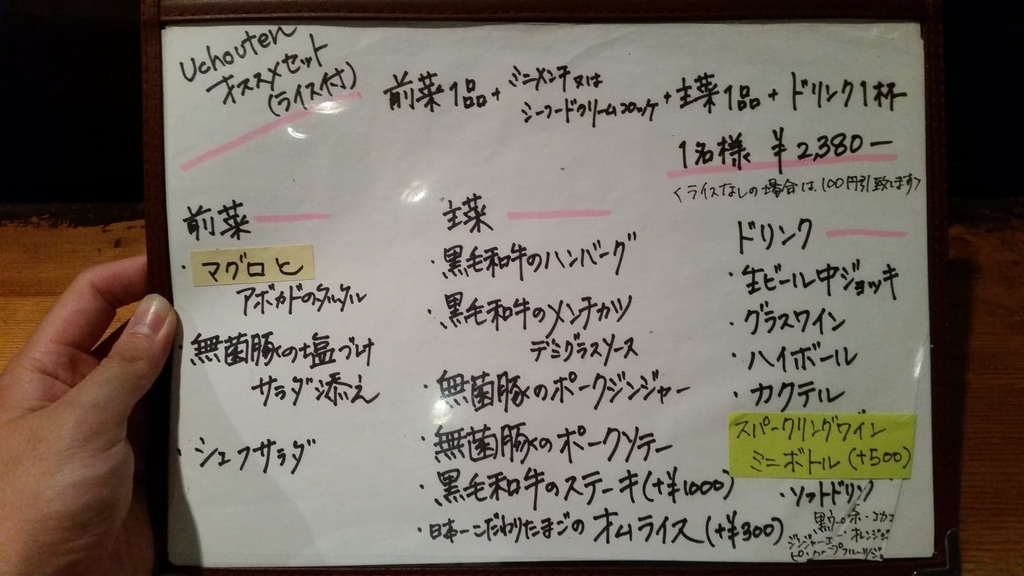 Uchouten
オススメセット
(ライス付)
前菜1品+ミニメンチ又は
シーフードクリームコロッケ+主菜1品+ドリンク1杯
1名様 ¥2,380ー
<ライスなしの場合は、100円引致します>
前菜
・マグロと
アボカドのタルタル
・無菌豚の塩づけ
サラダ添え
・シェフサラダ
主菜
・黒毛和牛のハンバーグ
・黒毛和牛のメンチカツ
デミグラスソース
・無菌豚のポークジンジャー
・無菌豚のポークソテー
・黒毛和牛のステーキ(+¥1000)
・日本一こだわりたまごのオムライス(+¥300)
ドリンク
・生ビール中ジョッキ
・グラスワイン
・ハイボール
・カクテル
スパークリングワイン
ミニボトル(+500)
・ソフトドリンク
ジンジャーエール・オレンジ